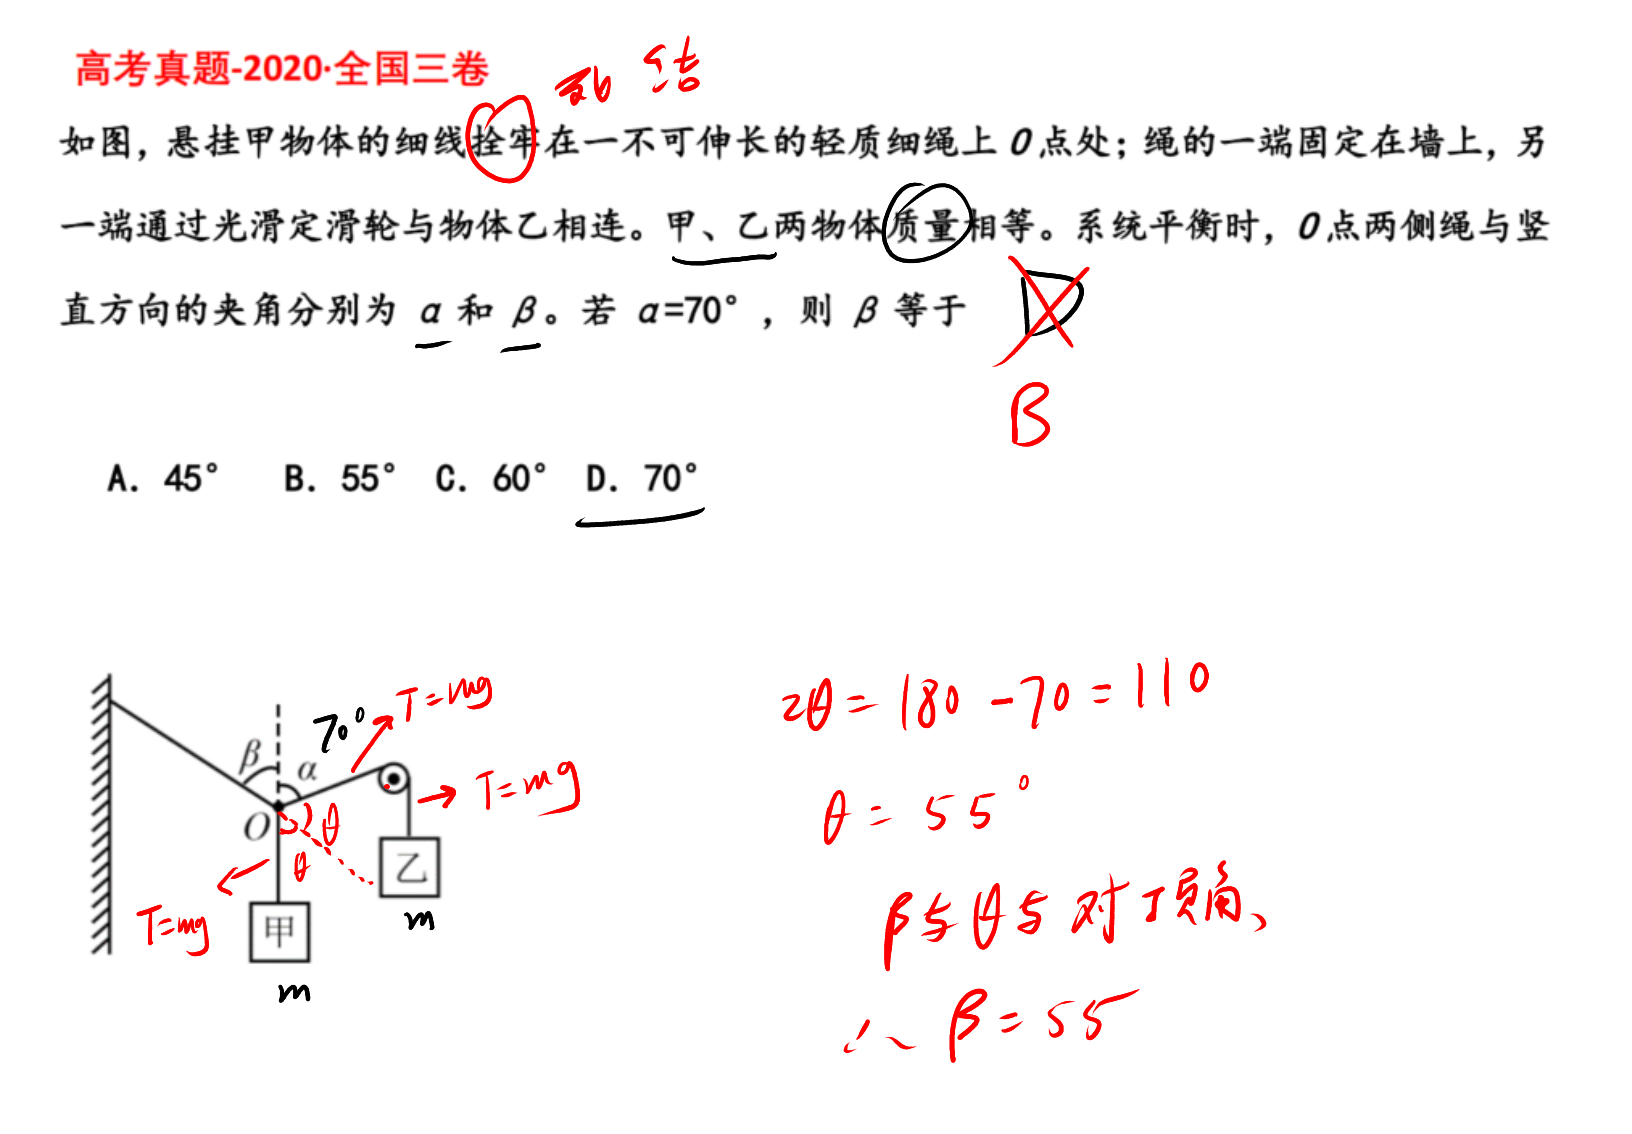 高考真题-2020·全国三卷
死结
如图，悬挂甲物体的细线拴牢在一不可伸长的轻质细绳上O点处；绳的一端固定在墙上，另
一端通过光滑定滑轮与物体乙相连。甲、乙两物体质量相等。系统平衡时，O点两侧绳与竖
直方向的夹角分别为 α 和 β。若 α=70°，则 β 等于
D
B
A. 45° B. 55° C. 60° D. 70°
T=mg
70°
β α
T=mg
O θ
θ
乙
T=mg
甲
m
m
2θ=180-70=110
θ=55°
β与θ与对顶角、
∴β=55